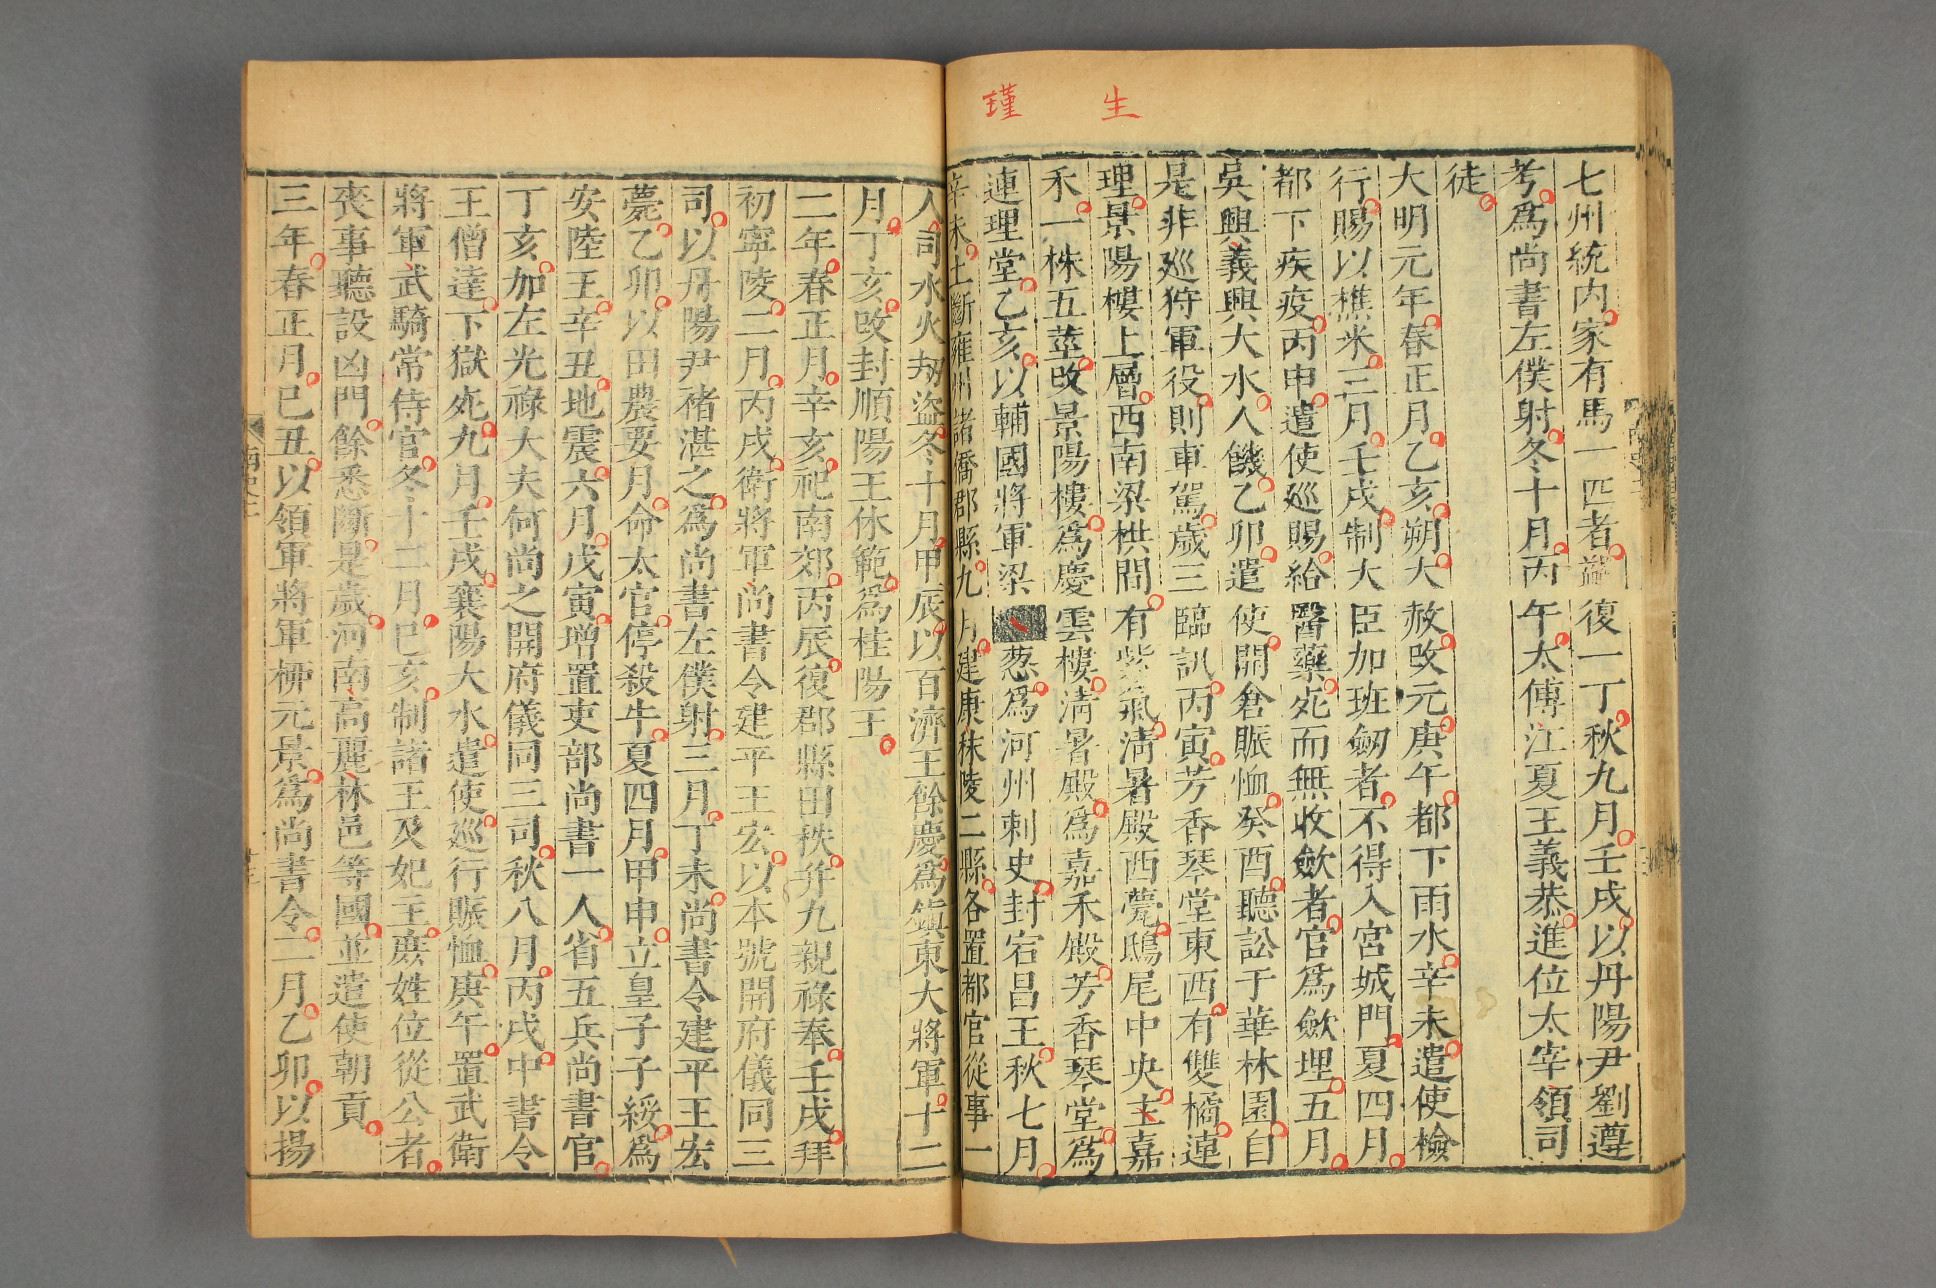 生
瑾
七州統內家有馬一匹者蠲復一丁秋九月壬戌以丹陽尹劉遵
考爲尚書左僕射冬十月丙午太傅江夏王義恭進位太宰領司
徒
大明元年春正月乙亥朔大赦改元庚午都下雨水辛未遣使檢
行賜以樵米三月壬戌制大臣加班劒者不得入宮城門夏四月
都下疾疫丙申遣使巡賜給醫藥死而無收斂者官爲斂埋五月
吳興義興大水人饑乙卯遣使開倉賑恤癸酉聽訟于華林園自
是非巡狩軍役則車駕歲三臨訊丙寅芳香琴堂東西有雙橘連
理景陽樓上層西南梁栱間有紫氣清暑殿西甍鴟尾中央生嘉
禾一株五莖改景陽樓爲慶雲樓清暑殿爲嘉禾殿芳香琴堂爲
連理堂乙亥以輔國將軍梁葱爲河州刺史封宕昌王秋七月
辛未土斷雍州諸僑郡縣九月建康秣陵二縣各置都官從事一
人司水火劫盜冬十月甲辰以百濟王餘慶爲鎮東大將軍十二
月丁亥改封順陽王休範爲桂陽王
二年春正月辛亥祀南郊丙辰復郡縣田秩并九親祿奉壬戌拜
初寧陵二月丙戌衛將軍尚書令建平王宏以本號開府儀同三
司以丹陽尹褚湛之爲尚書左僕射三月丁未尚書令建平王宏
薨乙卯以田農要月命太官停殺牛夏四月甲申立皇子子綏爲
安陸王辛丑地震六月戊寅增置吏部尚書一人省五兵尚書官
丁亥加左光祿大夫何尚之開府儀同三司秋八月丙戌中書令
王僧達下獄死九月壬戌襄陽大水遣使巡行賑恤庚午置武衛
將軍武騎常侍官冬十二月己亥制諸王及妃王庶姓位從公者
喪事聽設凶門餘悉斷是歲河南高麗林邑等國並遣使朝貢
三年春正月己丑以領軍將軍柳元景爲尚書令二月乙卯以揚